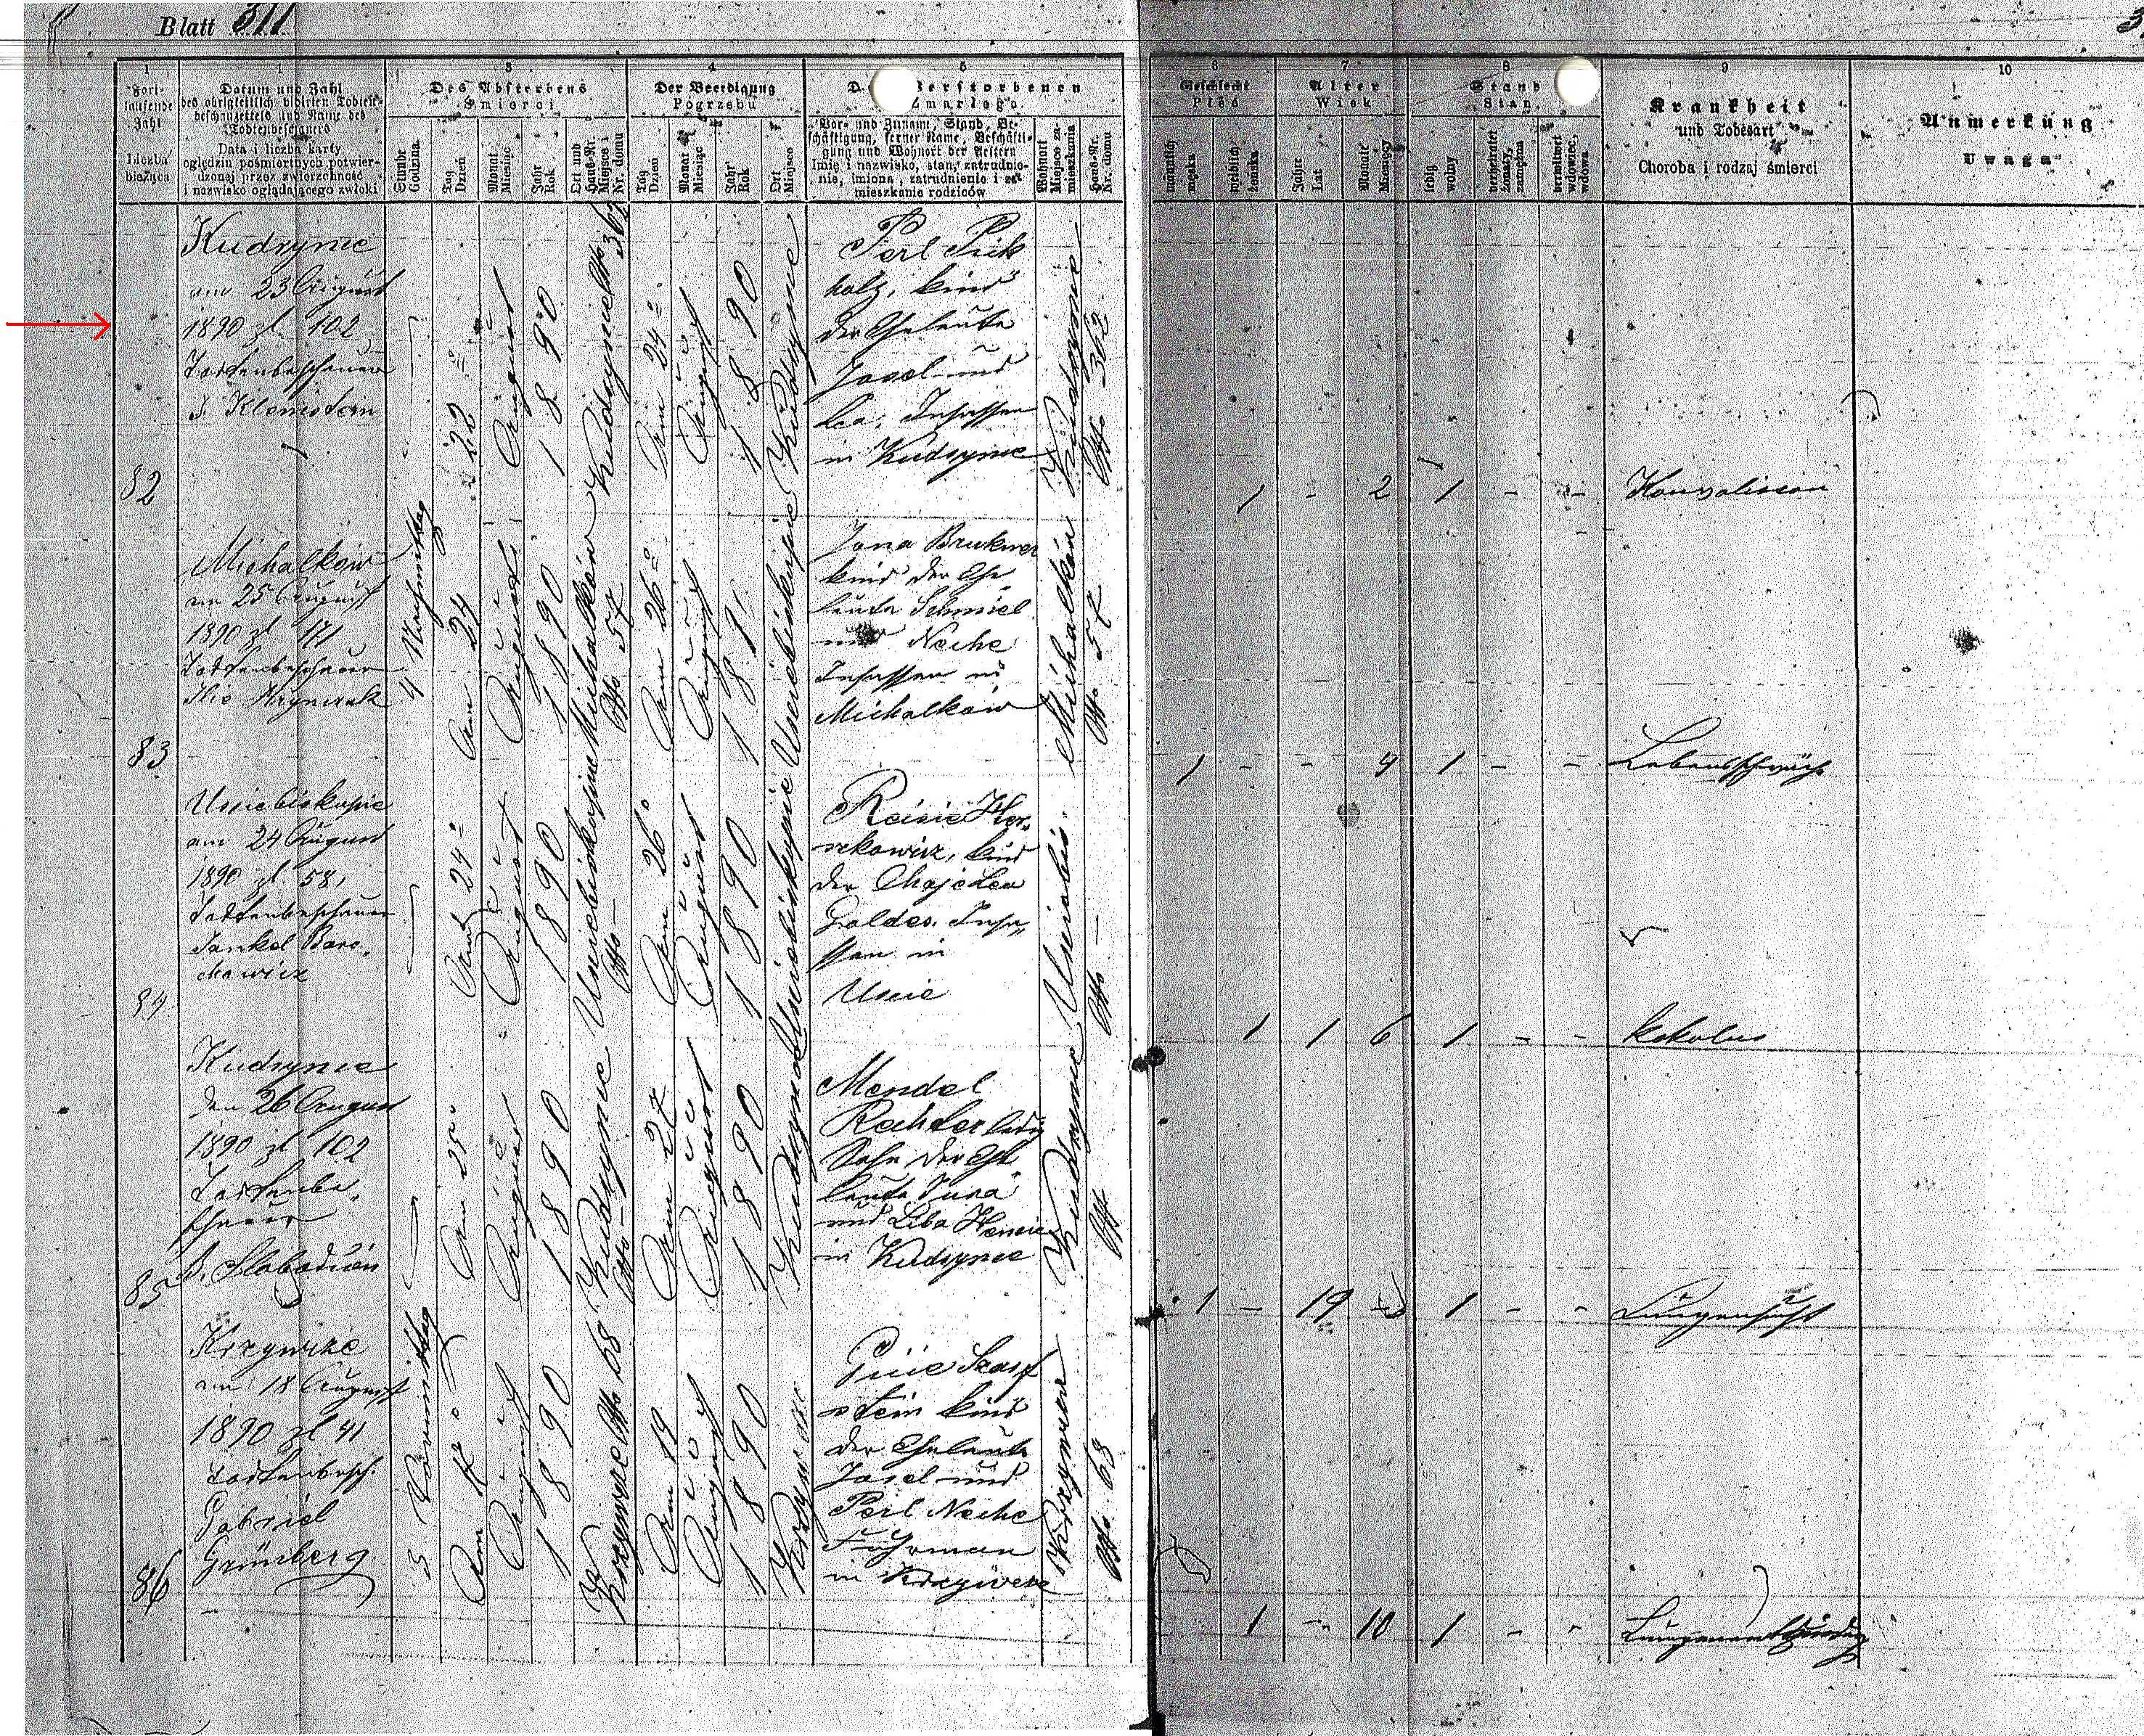 Blatt 311
3
1
Fort-
laufende
Zahl
Liczba
bieżąca
Datum und Zahl
des obrigkeitlich vidirten Todten-
beschauzettels und Name des
Todtenbeschauers
Data i liczba karty
oględzin pośmiertnych potwier-
dzonej przez zwierzchność
i nazwisko oglądającego zwłoki
3
Des Absterbens
Śmierci
Stunde
Godzina
Tag
Dzień
Monat
Miesiąc
Jahr
Rok
Ort und
Haus-Nr.
Miejsce i
Nr. domu
4
Der Beerdigung
Pogrzebu
Tag
Dzień
Monat
Miesiąc
Jahr
Rok
Ort
Miejsce
5
Verstorbenen
Zmarłego
Vor- und Zuname, Stand, Be-
schäftigung, ferner Name, Beschäfti-
gung und Wohnort der Aeltern
Imię i nazwisko, stan, zatrudnie-
nie, imiona, zatrudnienie i za-
mieszkanie rodziców
Wohnort
Miejsce za-
mieszkania
Haus-Nr.
Nr. domu
6
Geschlecht
Płeć
männlich
męska
weiblich
żeńska
7
Alter
Wiek
Jahre
Lat
Monate
Miesięcy
8
Stand
Stan
ledig
wolny
verheiratet
żonaty,
zamężna
verwitwet
wdowiec,
wdowa
9
Krankheit
und Todesart
Choroba i rodzaj śmierci
10
Anmerkung
Uwaga
82
Kudrynce
am 23 August
1890 zl. 102
Todtenbeschauer
22
August
1890
Kudrynce No 362
Am 24
August
1890
Kudrynce
Perl Pick
holz, Kind
der Eheleute
Josel und
Lea, Insassen
in Kudrynce
Kudrynce
No 362
1 - 2 1 - -
83
Michalków
am 25 August
1890 zl 171
Todtenbeschauer
4 Nachmittag
Am 24
August
1890
Michalków
No 57
Am 26
August
Uscie biskupie
Jona Brukner
Kind der Ehe
leute Schmiel
und Neche
Insassen in
Michalków
Michalków
No 57
1 - - 4 1 - -
Lebensschwäche
84
Uscie biskupie
am 24 August
1890 zl. 58,
Todtenbeschauer
Jankel Baro„
chowicz
Am 24
August
1890
Uscie biskupie
No —
Am 26
August
1890
Uscie biskupie
Reisie Her„
szkowicz, Kind
der Chaje Lea
Goldes. Insa„
ssen in
Uscie
No —
1 1 6 1 - -
Kokolus
85
Kudrynce
den 26 August
1890 zl 102
Todtenbe„
schauer
Am 25
August
1890
Kudrynce
No —
Am 27
August
1890
Kudrynce
Mendel
Rechter ledig
Sohn der Ehe
leute
und Liba
in Kudrynce
Kudrynce
No
1 - 19 1 - -
Lungensucht
86
Krzywcze
am 18 August
1890 zl 41
Todtenbesch.
Gabriel
Grünberg
3 Vormittag
Am
August
1890
Krzywcze No 68
Am 19
August
1890
Krzywcze
stein Kind
der Eheleute
Josel und
Perl Neche
Fuhrman
in Krzywcze
Krzywcze
No. 68
1 - 10 1 - -
Lungenentzündung